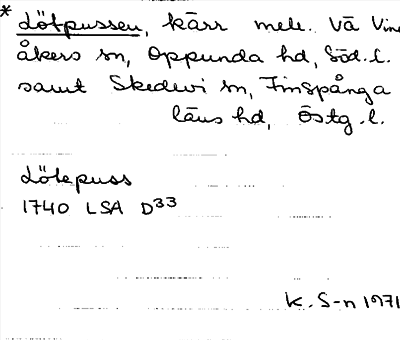 * Lötpussen, kärr mell. Vä Vin
åkers sn, Oppunda hd, Söd. l.
samt Skedevi sn, Finspånga
läns hd, Östg. l.
Lötepuss
1740 LSA D33
K. S-n 1971